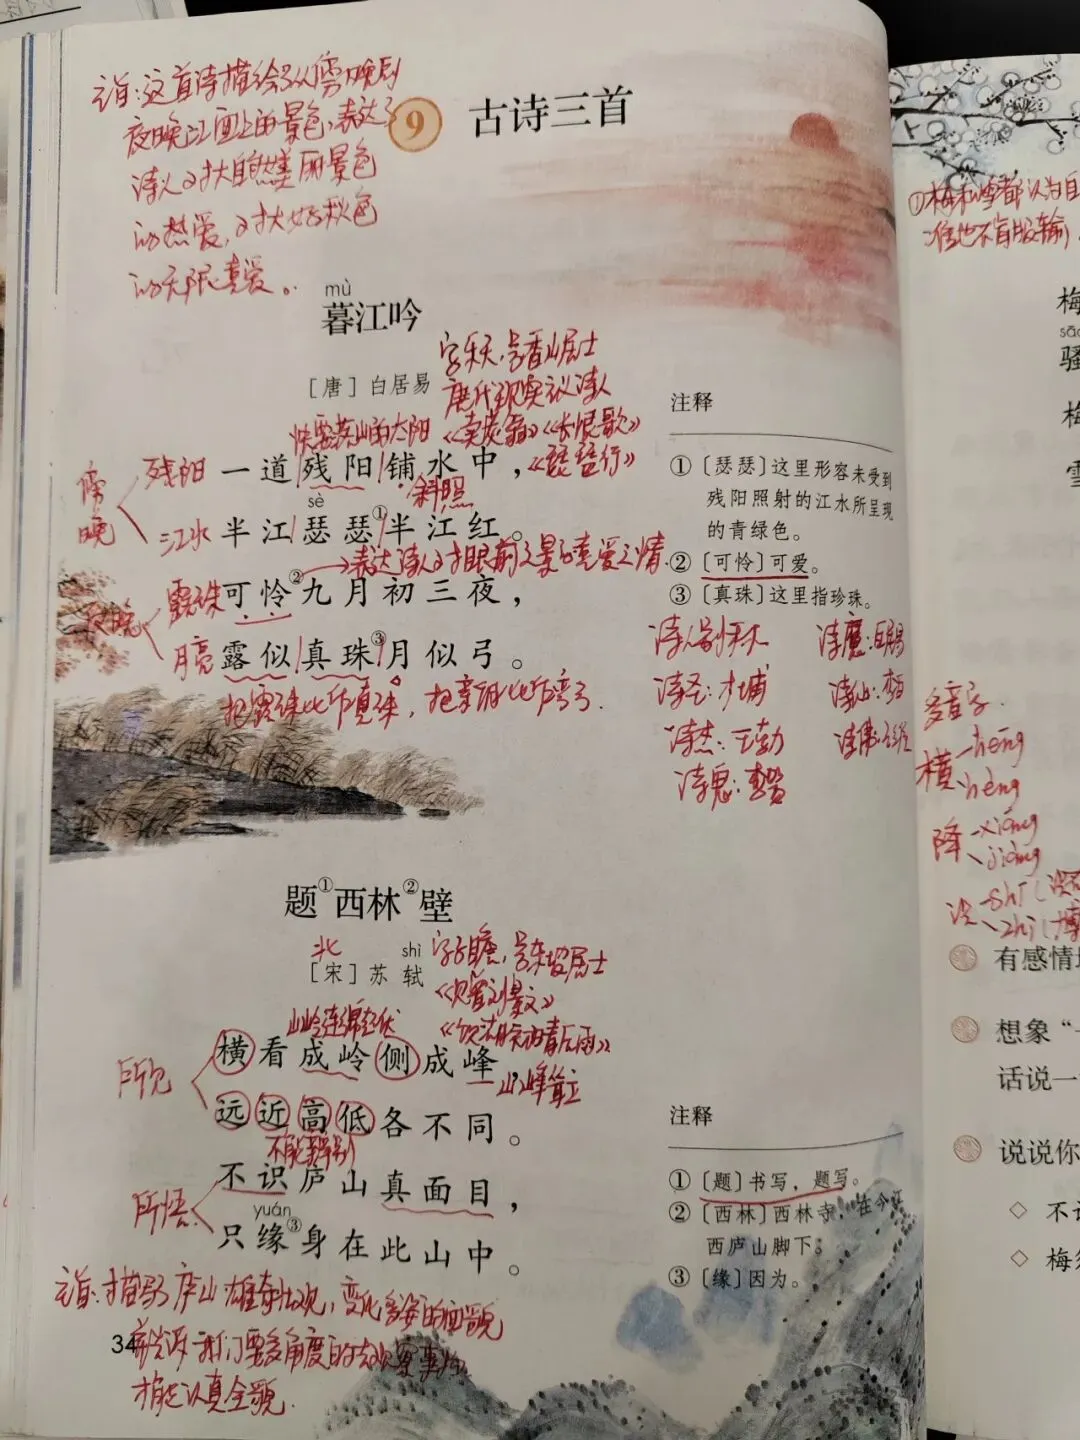 主旨:这首诗描绘了从傍晚到
夜晚江面上的景色,表达了
诗人对大自然美丽景色
的热爱,对大好秋色
的无限喜爱。
9 古诗三首
mù
暮江吟
字乐天,号香山居士
[唐] 白居易
唐代现实主义诗人
快要落山的太阳
《卖炭翁》《长恨歌》
《琵琶行》
傍晚
残阳
一道残阳铺水中,
斜照
sè
江水
半江瑟瑟①半江红。
表达诗人对眼前之景的喜爱之情.
夜晚
露珠
可怜②九月初三夜,
月亮
露似真珠③月似弓。
把露珠比作真珠,把
注释
①〔瑟瑟〕这里形容未受到
残阳照射的江水所呈现
的青绿色。
②〔可怜〕可爱。
③〔真珠〕这里指珍珠。
诗人别称
诗魔:白居易
诗圣:杜甫
诗仙:李白
诗杰:王勃
诗鬼:李贺
题①西林②壁
北
shì
[宋] 苏轼
字子瞻,号东坡居士
《饮湖上初晴后雨》
山岭连绵起伏
所见
横看成岭侧成峰,
山峰耸立
远近高低各不同。
不能辨别
所悟
不识庐山真面目,
yuán
只缘③身在此山中。
主旨:描写了庐山雄奇壮观,变化多姿的面貌
告诉我们要多角度的去观察事物
才能认真全貌.
34
注释
①〔题〕书写,题写。
②〔西林〕西林寺,在今江
西庐山脚下。
③〔缘〕因为。
①梅和雪都认为自
不肯服输
梅
sāo
骚
梅
雪
多音字.
横 héng
hèng
降 xiáng
jiàng
没
有感情地
想象“一
话说一
说说你
◇ 不识
◇ 梅须